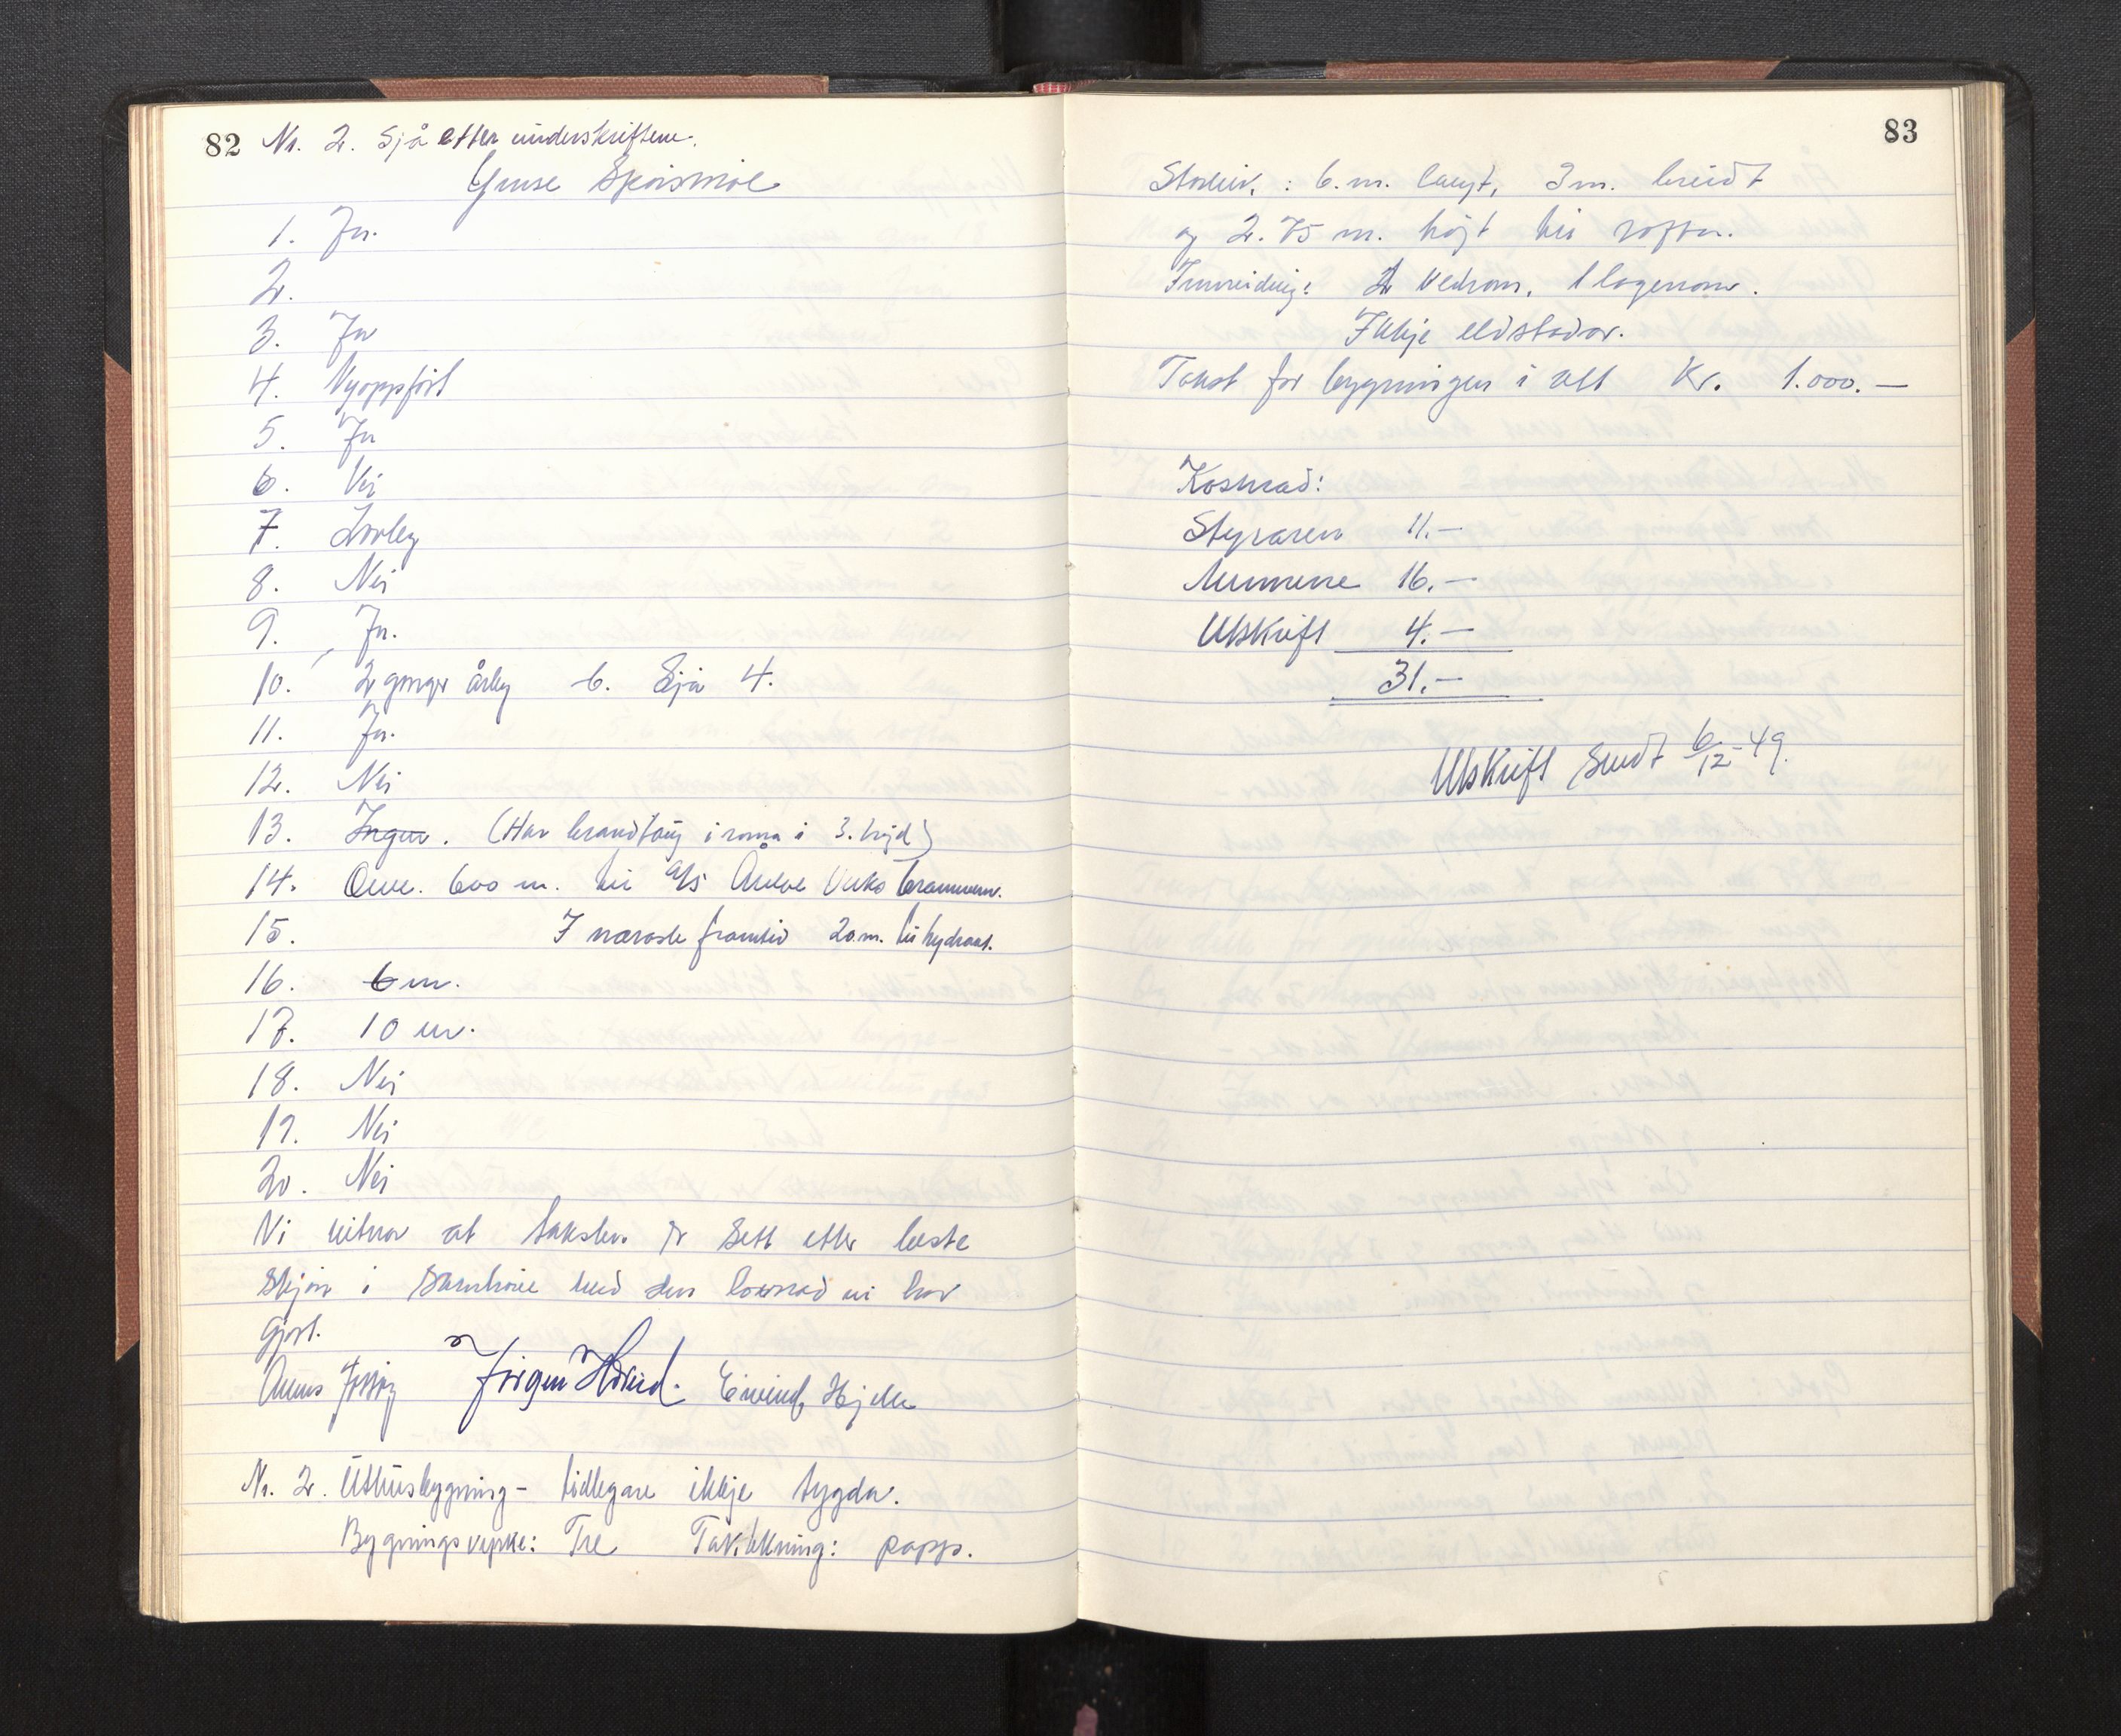 82 Nr. 2. Sjå etter underskriftene.
Ymse Spörsmål
1. Ja.
2.
3. Ja
4. Nyoppfört
5. Ja
6. Nei
7. Lovleg
8. Nei
9. Ja.
10. 2 gonger årleg 6. Sjå 4.
11. Ja.
12. Nei
13. Ingen. (Har brandtaug i roma i 3. högd)
14. Omr. 600 m. til A/S Årdal Verks brannvern.
15. I næraste framtid 20 m. til hydrant.
16. 6 m.
17. 10 m.
18. Nei
19. Nei
20. Nei
Vi vitnar at taksten er sett etter beste
skjön i samhöve med den lovnad vi har
gjort.
Jörgen Eivind Hjelle
Nr. 2. Uthusbygning - tidlegare ikkje trygda.
Bygningsverke: Tre Taktekning: papp.
83
Storleik: 6. m. langt, 3 m. breidt
og 2.75 m. högt til röstet.
Innreiding: 2 vedrom, 1 lagerrom.
Ikkje eldstadar.
Takst for bygningen i alt Kr. 1.000.—
Kostnad:
Styraren 11.—
Mennene 16.—
Utskrift 4.—
31.—
Utskrift sendt 6/12-49.